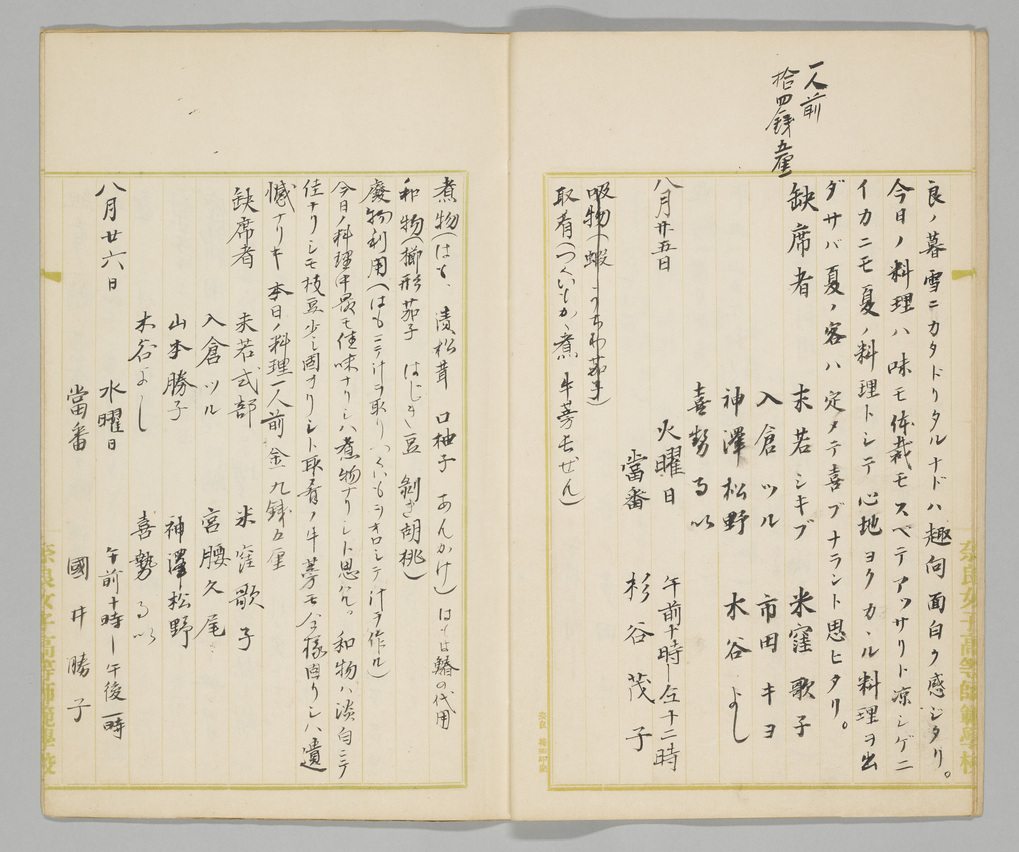 一人前
拾四銭五厘
良ノ暮雪ニカタドリタルナドハ趣向面白ク感ジタリ。
今日ノ料理ハ味モ体裁モスベテアッサリト凉シゲニ
イカニモ夏ノ料理トシテ心地ヨクカヽル料理ヲ出
ダサバ夏ノ客ハ定メテ喜ブナラント思ヒタリ。
缺席者 末若シキブ 米窪歌子
入倉ツル 市田キヨ
神澤松野 木谷よし
喜勢るい
八月廿五日 火曜日 午前十時―仝十二時
當番 杉谷茂子
吸物(蝦 うちわ茄子)
取肴(つくいもかヾ煮 牛蒡吉ぜん)
煮物(はも、漬松茸 口柚子 あんかけ)はもは鰆の代用
和物(櫛形茄子 はじき豆 剝ぎ胡桃)
廢物利用(はもニテ汁ヲ取リつくいもヲオロシテ汁ヲ作ル)
今日ノ料理中最モ佳味ナリシハ煮物ナリシト思ヘリ 和物ハ淡白ニテ
佳ナリシモ枝豆少シ固ナリシト取肴ノ牛蒡モ仝様固リシハ遺
憾ナリキ 本日ノ料理一人前金九銭五厘
缺席者 末若式部 米窪歌子
入倉ツル 宮腰久尾
山本勝子 神澤松野
木谷よし 喜勢るい
八月廿六日 水曜日 午前十時―午後一時
當番 國井勝子
奈良女子高等師範學校
奈良女子高等師範學校